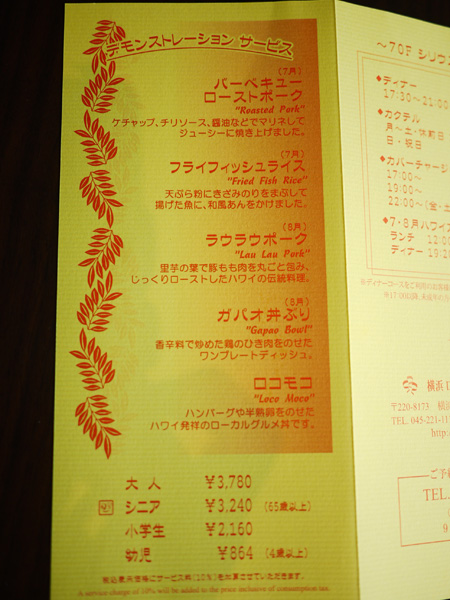 デモンストレーション サービス
(7月)
バーベキュー
ローストポーク
"Roasted Pork"
ケチャップ、チリソース、醤油などでマリネして
ジューシーに焼き上げました。
(7月)
フライフィッシュライス
"Fried Fish Rice"
天ぷら粉にきざみのりをまぶして
揚げた魚に、和風あんをかけました。
(8月)
ラウラウポーク
"Lau Lau Pork"
里芋の葉で豚もも肉を丸ごと包み、
じっくりローストしたハワイの伝統料理。
(8月)
ガパオ丼ぶり
"Gapao Bowl"
香辛料で炒めた鶏のひき肉をのせた
ワンプレートディッシュ。
ロコモコ
"Loco Moco"
ハンバーグや半熟卵をのせた
ハワイ発祥のローカルグルメ丼です。
大人 ¥3,780
シニア ¥3,240 (65歳以上)
小学生 ¥2,160
幼児 ¥864 (4歳以上)
税込表示価格にサービス料(10%)を加算させていただきます。
A service charge of 10% will be added to the price inclusive of consumption tax.
～70F シリウス
◆ディナー
17:30～21:00
◆カクテル
月～土・休前日
日・祝日
◆カバーチャージ
17:00～
19:00～
22:00～(金・土
◆7・8月ハワイ
ランチ 12:0
ディナー 19:2
※ディナーコースをご利用のお客様
横浜
〒220-8173 横浜
TEL. 045-221-11
http:
ご予
TEL.